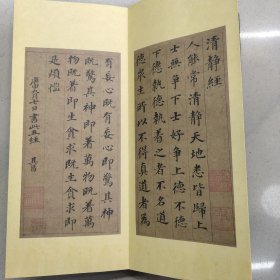 清静經
人能常清静天地悉皆歸上
士無争下士好争上德不德
下德執德執着之者不名道
德衆生所以不得真道者為
有妄心既有妄心即驚其神
既驚其神即着萬物既着萬
物既着即生貪求既生貪求即
是煩惱
日書此五經 其昌